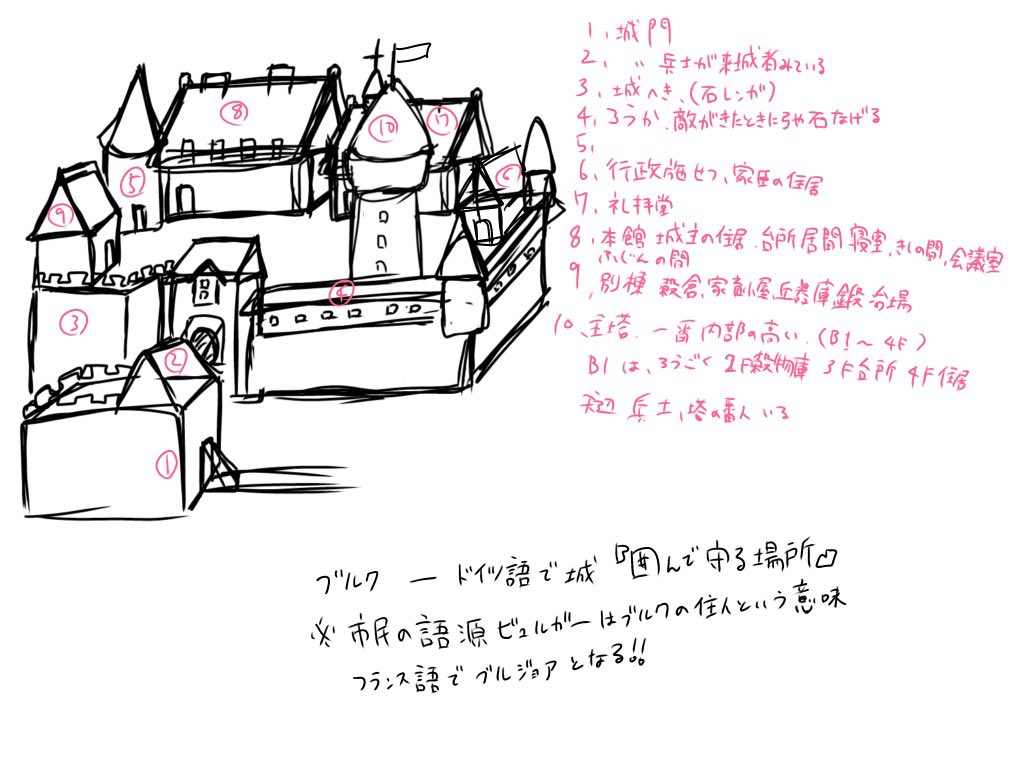 1、城門
2、〃 兵士が来城者みている
3、城へき、(石レンガ)
4、ろうか、敵がきたときに弓や石なげる
5、
6、行政施せつ、家臣の住居
7、礼拝堂
8、本館 城主の住居、台所居間寝室、きしの間、会議室
ふじんの間
9、別棟 穀倉、家畜小屋、兵器庫鍛冶場
10、主塔、一番内部の高い、(B1〜4F)
B1は、ろうごく 2F穀物庫 3F台所 4F住居
天辺 兵士、塔の番人 いる
⑧
⑩
⑰
⑤
⑥
⑨
④
③
②
①
ブルク ー ドイツ語で城『囲んで守る場所』
※市民の語源ビュルガーはブルクの住人という意味
フランス語でブルジョアとなる!!